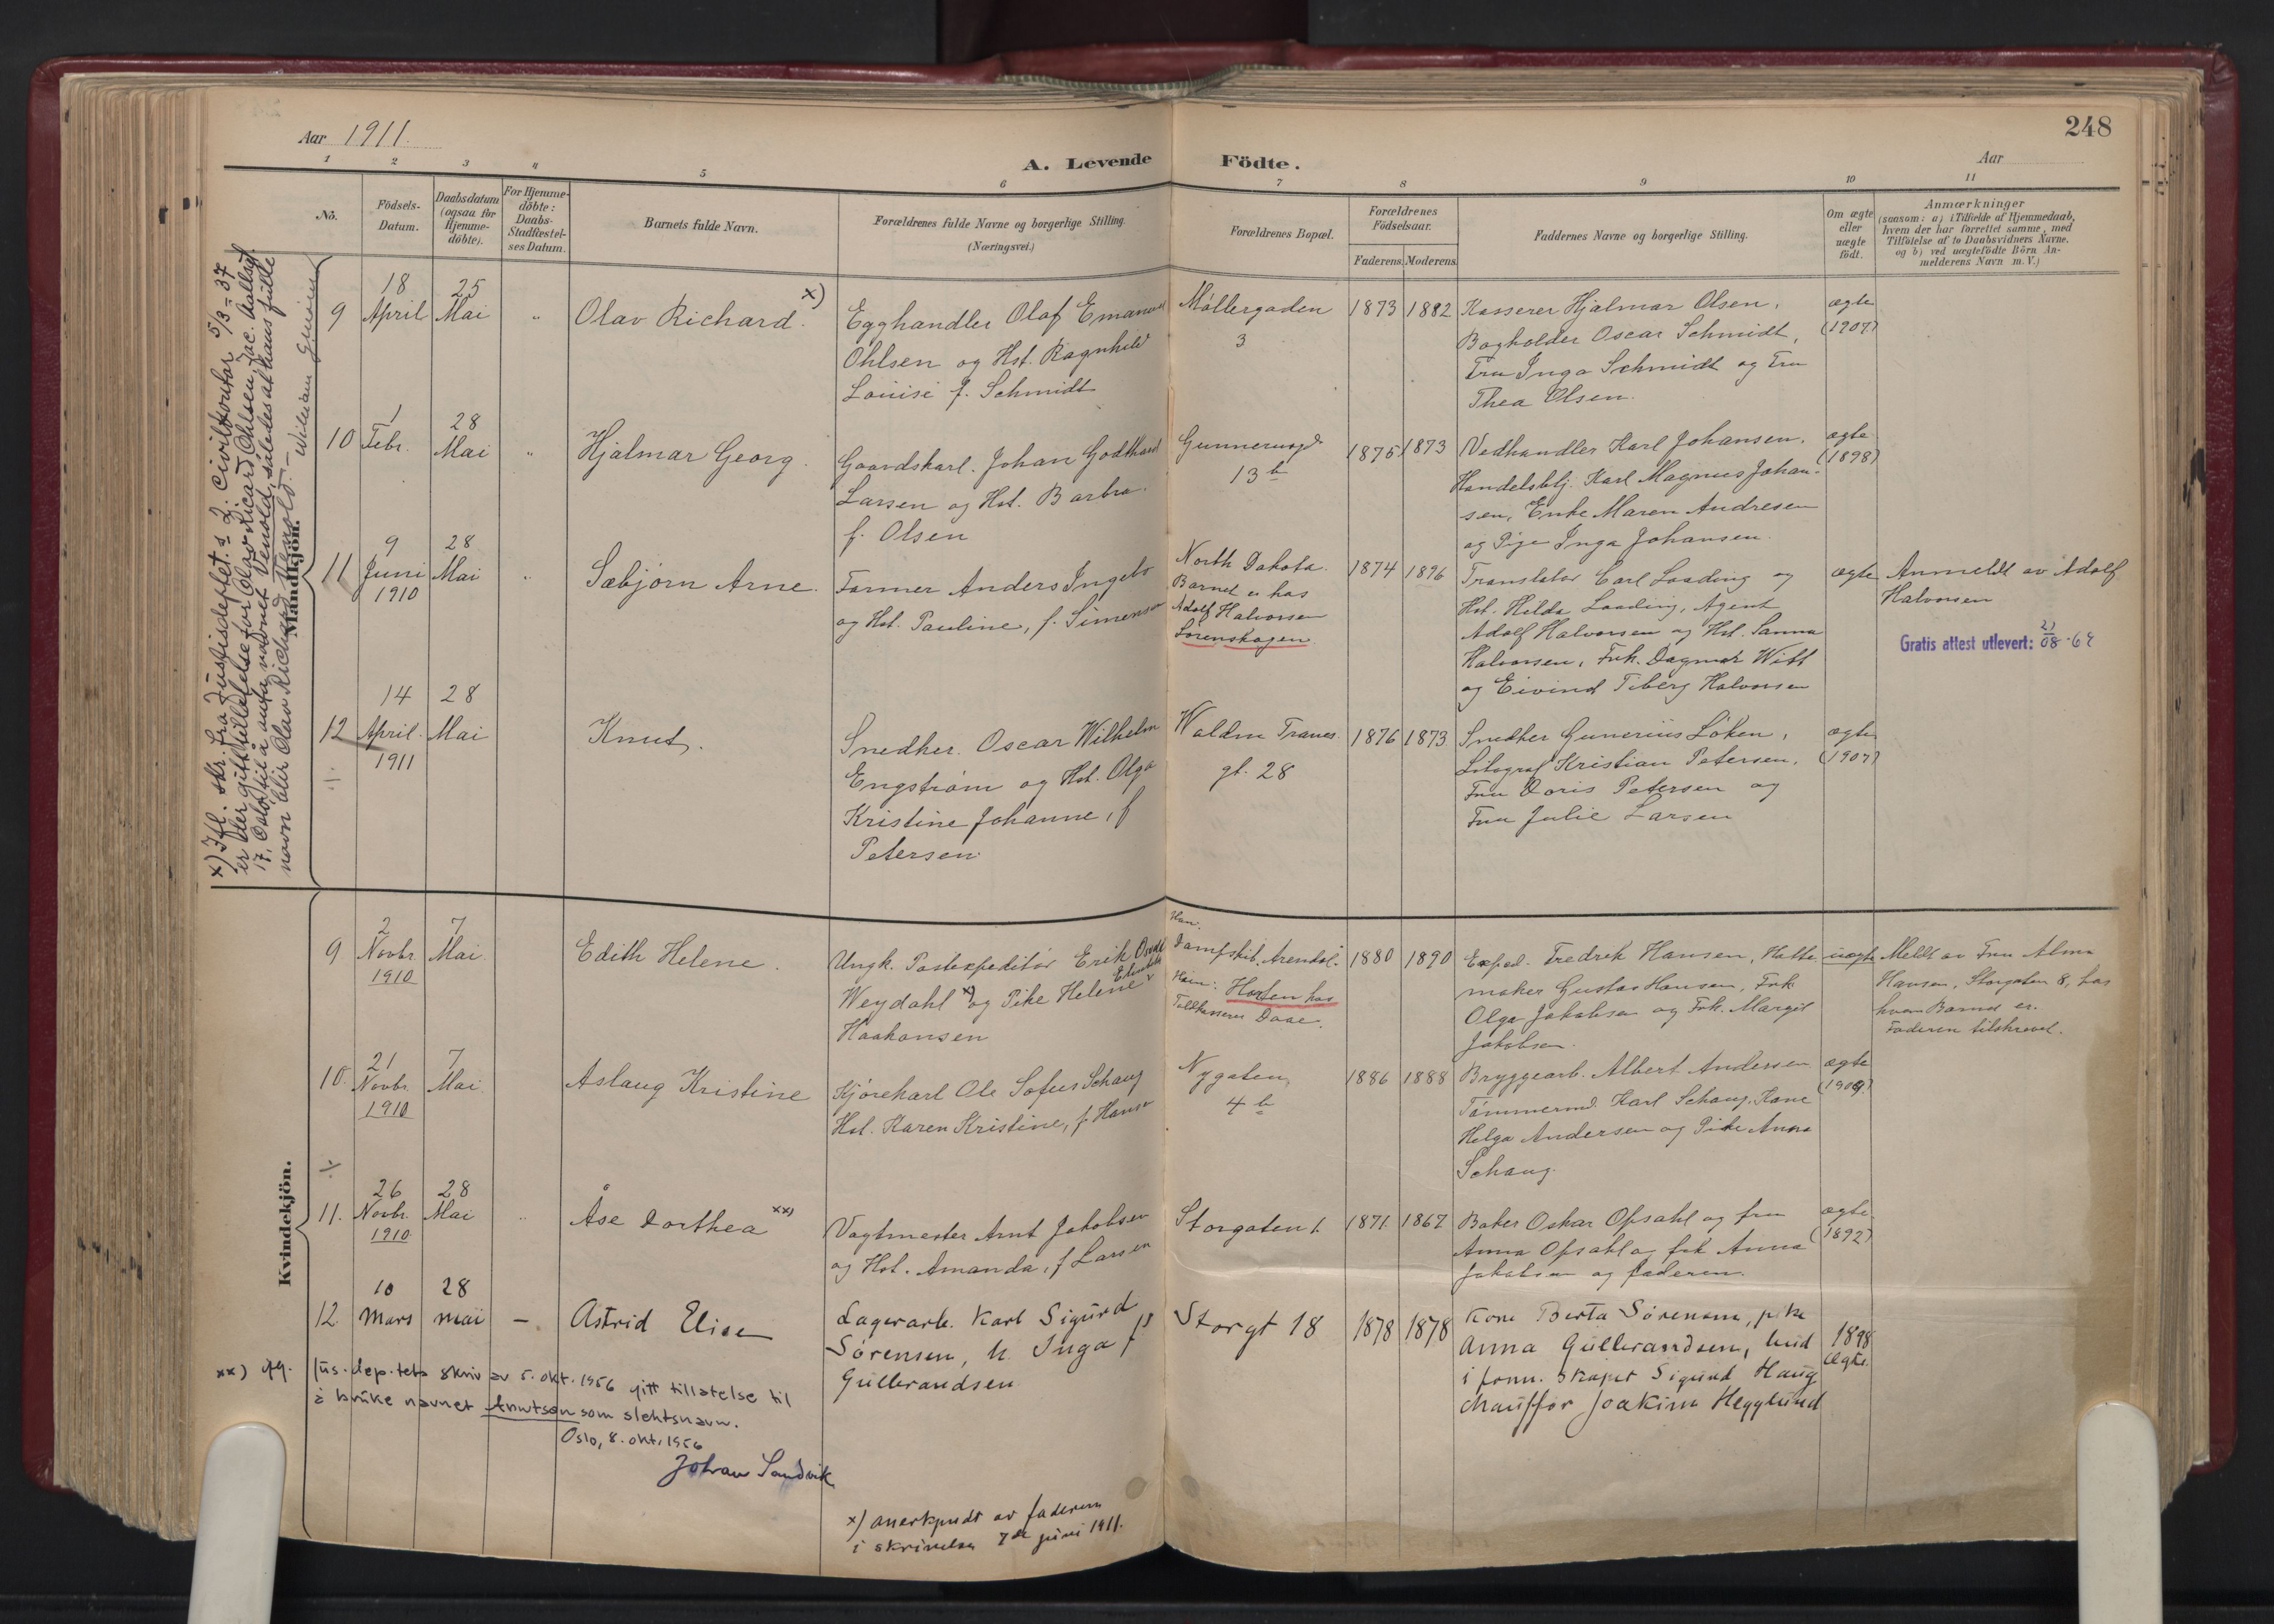 248
Aar 1911.
A. Levende Födte.
Aar
1 2 3 4 5 6 7 8 9 10 11
No.
Födsels-
Datum.
Daabsdatum
(ogsaa for
Hjemme-
döbte).
For Hjemme-
döbte:
Daabs-
Stadfæstel-
ses Datum.
Barnets fulde Navn.
Forældrenes fulde Navne og borgerlige Stilling.
(Næringsvei.)
Forældrenes Bopæl.
Forældrenes
Födselsaar.
Faderens. Moderens.
Faddernes Navne og borgerlige Stilling.
Om ægte
eller
uægte
födt.
Anmærkninger
(saasom: a) i Tilfælde af Hjemmedaab,
hvem der har forrettet samme, med
Tilföielse af to Daabsvidners Navne.
og b) ved uægtefödte Börn An-
melderens Navn m. V.)
x) Ifl. skr. fra Justisdeptet. s 2. Civilkontor 5/3-37
er der gitt tillatelse for Olav Ricard Ohlsen, Jac. Aallsgt.
17, Oslo til å anta navnet Venold, således at hans fulde
navn blir Olav Richard Venold. –
Mandkjön.
9
18
April
25
Mai
"
Olav Richard. x)
Egghandler Olaf Emanuel
Ohlsen og Hst. Ragnhild
Louise f. Schmidt
Möllergaden
3
1873 1882
Kasserer Hjalmar Olsen,
Bogholder Oscar Schmidt,
Fru Inga Schmidt og Fru
Thea Olsen.
ægte
(1907)
10
1
Febr.
28
Mai
"
Hjalmar Georg.
Gaardskarl. Johan Godthard
Larsen og Hst. Barbra
f. Olsen
Gunnerusgd.
13 b
1875 1873
Vedhandler Karl Johansen,
Handelsblj. Karl Magnus Johan-
sen, Enke Maren Andresen
og Pige Inga Johansen.
ægte
(1898)
11
9
Juni
1910
28
Mai
"
Sæbjörn Arne.
Farmer Anders Ingebo
og Hst. Pauline, f. Simensen
North Dakota.
Barnet er hos
Adolf Halvorsen
Lørenskogen
1874 1896
Translatør Carl Laading og
Hst. Hilda Laading, Agent
Adolf Halvorsen og Hst. Sanna
Halvorsen, Frk. Dagmar Witt
og Eivind Tiberg Halvorsen
ægte
Anmeldt av Adolf
Halvorsen
Gratis attest utlevert:
12
14
April
1911
28
Mai
Knut.
Snedker. Oscar Wilhelm
Engström og Hst. Olga
Kristine Johanne, f
Petersen.
Waldm Tranes
gt. 28
1876 1873
Snedker Gunerius Löken,
Litograf Kristian Petersen,
Fru Doris Petersen og
Fru Julie Larsen
ægte
(1907)
Kvindekjön.
9
2
Novbr
1910
7
Mai.
Edith Helene.
Ungk. Postexpeditör Erik
Weydahl x) og Pike Helene
Haakonsen
Dampskib. Arendal.
Horten hos
Toldkasserer Daae.
1880 1890
Exped. Fredrik Hansen, Hatte-
maker Gustav Hansen, Frk.
Olga Jakobsen og Frk. Margit
Jakobsen.
uægte
Meldt av Fru Alma
Hansen, Storgaten 8, hos
hvem Barnet er.
Faderen tilskrevet.
10.
21
Novbr.
1910
7
Mai.
Aslaug Kristine
Kjörekarl Ole Sofus Schaug
Hst. Karen Kristine, f. Hansen
Nygaten
4 b
1886 1888
Bryggearb. Albert Andersen
Tömmermd. Karl Schaug, Kone
Helga Andersen og Pike Anna
Schaug.
ægte
(1909)
11.
26
Novbr.
1910
28
Mai
"
Åse Dorthea xx)
Vagtmester Arnt Jakobsen
og Hst. Amanda, f Larsen
Storgaten 1.
1871 1867
Baker Oskar Opsahl og fru
Anna Opsahl og frk Anna
Jakobsen og faderen.
ægte
(1892)
12.
10
Mars
28
mai
–
Astrid Elise
Lagerarb. Karl Sigurd
Sörensen, h. Inga f
Gulbrandsen
Storgt 18
1878 1878
Kone Berta Sörensen, pike
Anna Gulbrandsen, bud
i Sigurd Haug
chauffør Joakim Hegglund
1898
Ægte.
xx) jus.dep.tets skriv av 5.okt.1956 gitt tillatelse til
å bruke navnet Arnutsen som slektsnavn.
Oslo, 8.okt.1956
Johan Sandvik
x) anerkjendt av faderen
i skrivelse 7de juni 1911.